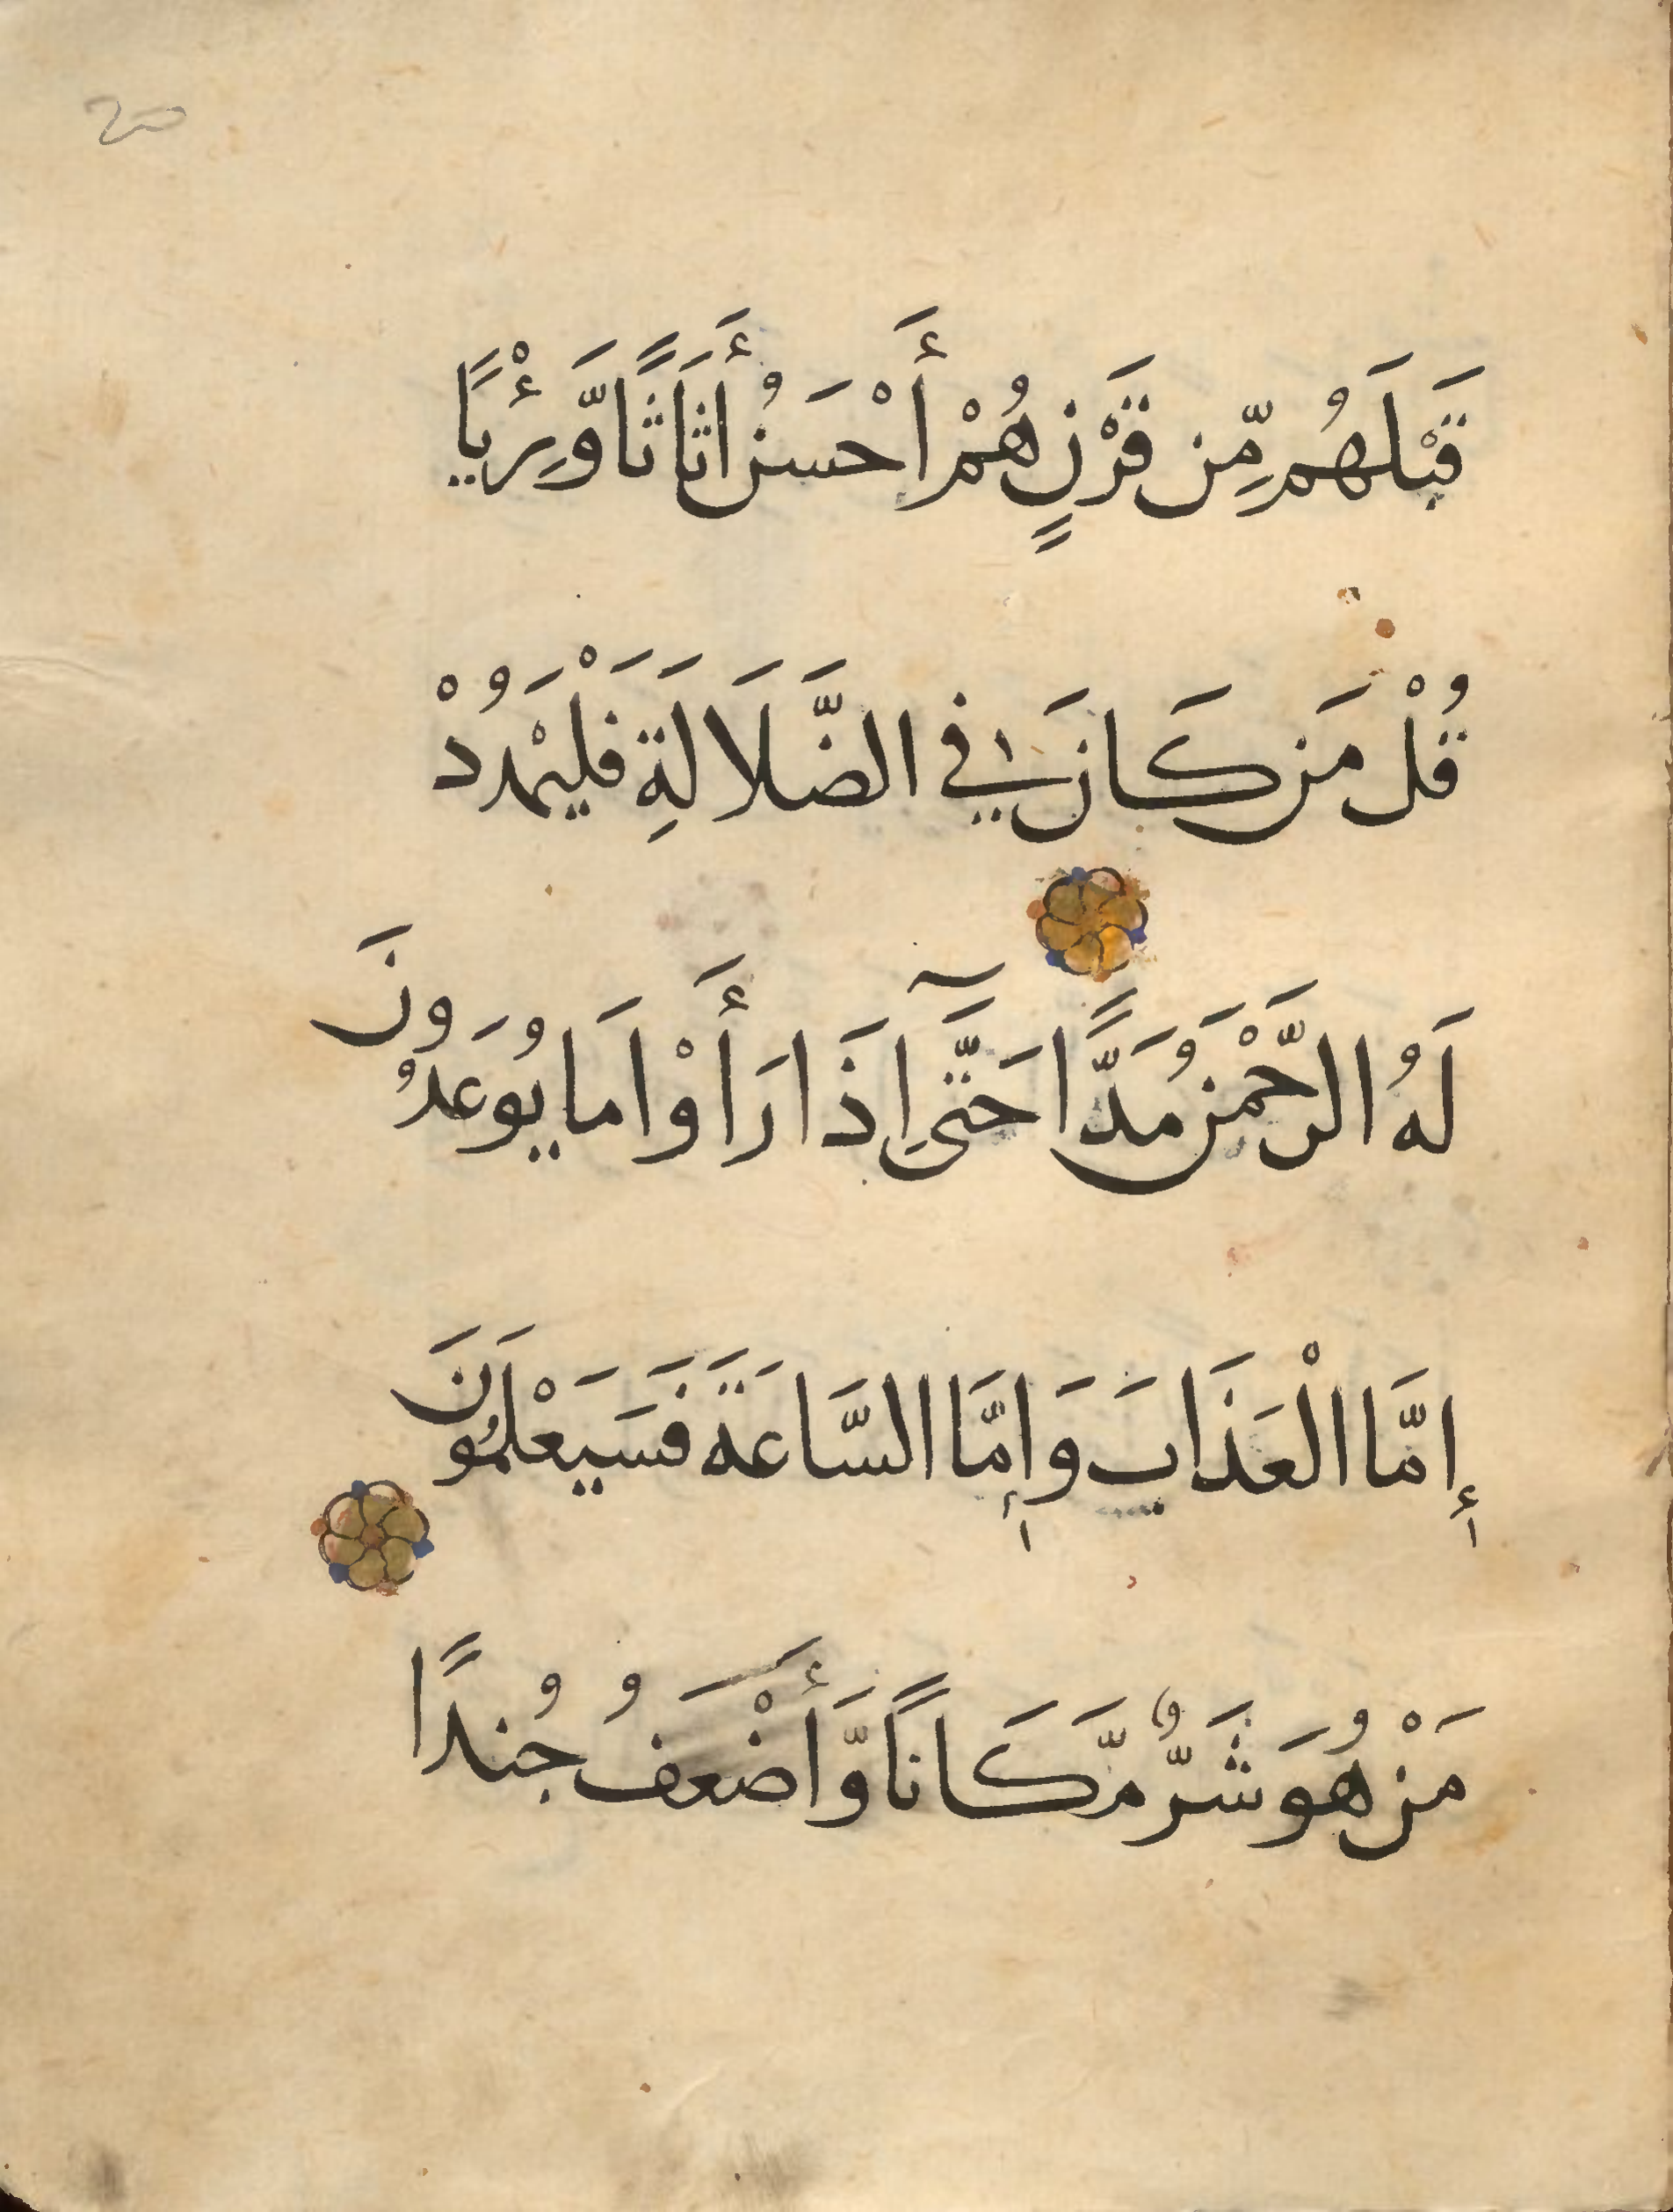 قَبْلَهُم مِّن قَرْنٍ هُمْ أَحْسَنُ أَثَاثًا وَّرِئْيًا
قُلْ مَن كَانَ فِي الضَّلَالَةِ فَلْيَمْدُدْ
لَهُ الرَّحْمَنُ مَدًّا حَتَّىٰٓ إِذَا رَأَوْا مَا يُوعَدُونَ
إِمَّا الْعَذَابَ وَإِمَّا السَّاعَةَ فَسَيَعْلَمُونَ
مَنْ هُوَ شَرٌّ مَّكَانًا وَّأَضْعَفُ جُندًا